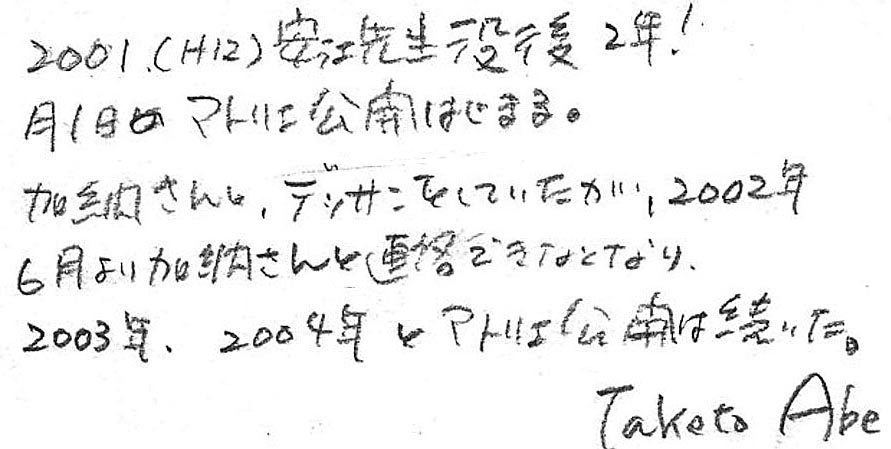 2001.(H12)安江先生没後 2年!
月1日の アトリエ公開はじまる。
加納さんと、デッサンをしていたが、2002年
6月より加納さんと連絡できなくなり、
2003年、2004年と アトリエ公開は続いた。
Taketo Abe